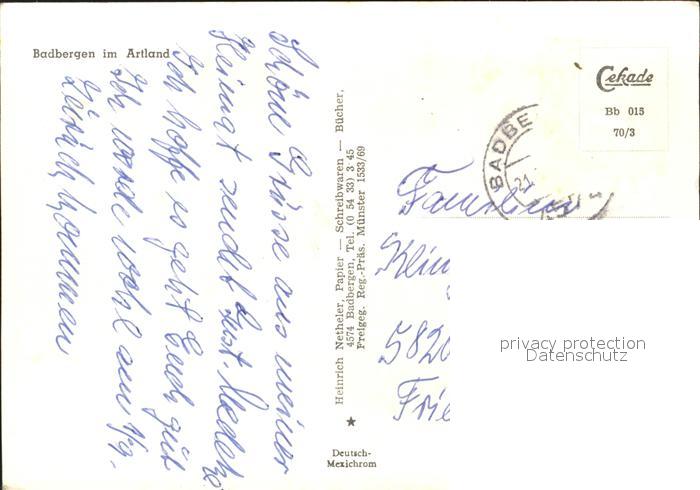 Badbergen im Artland
Schöne Grüsse aus meiner
Heimat sendet Gust.
Ich hoffe es geht Euch gut
Ich werde wohl am 1/9.
zurück kommen
Heinrich Netheler, Papier — Schreibwaren — Bücher,
4574 Badbergen, Tel. (0 54 33) 3 45
Freigeg. Reg.-Präs. Münster 1533/69
Deutsch-
Mexichrom
Cekade
Bb 015
70/3
BADBE
21
Familie
Klin
5820
Frie
privacy protection
Datenschutz